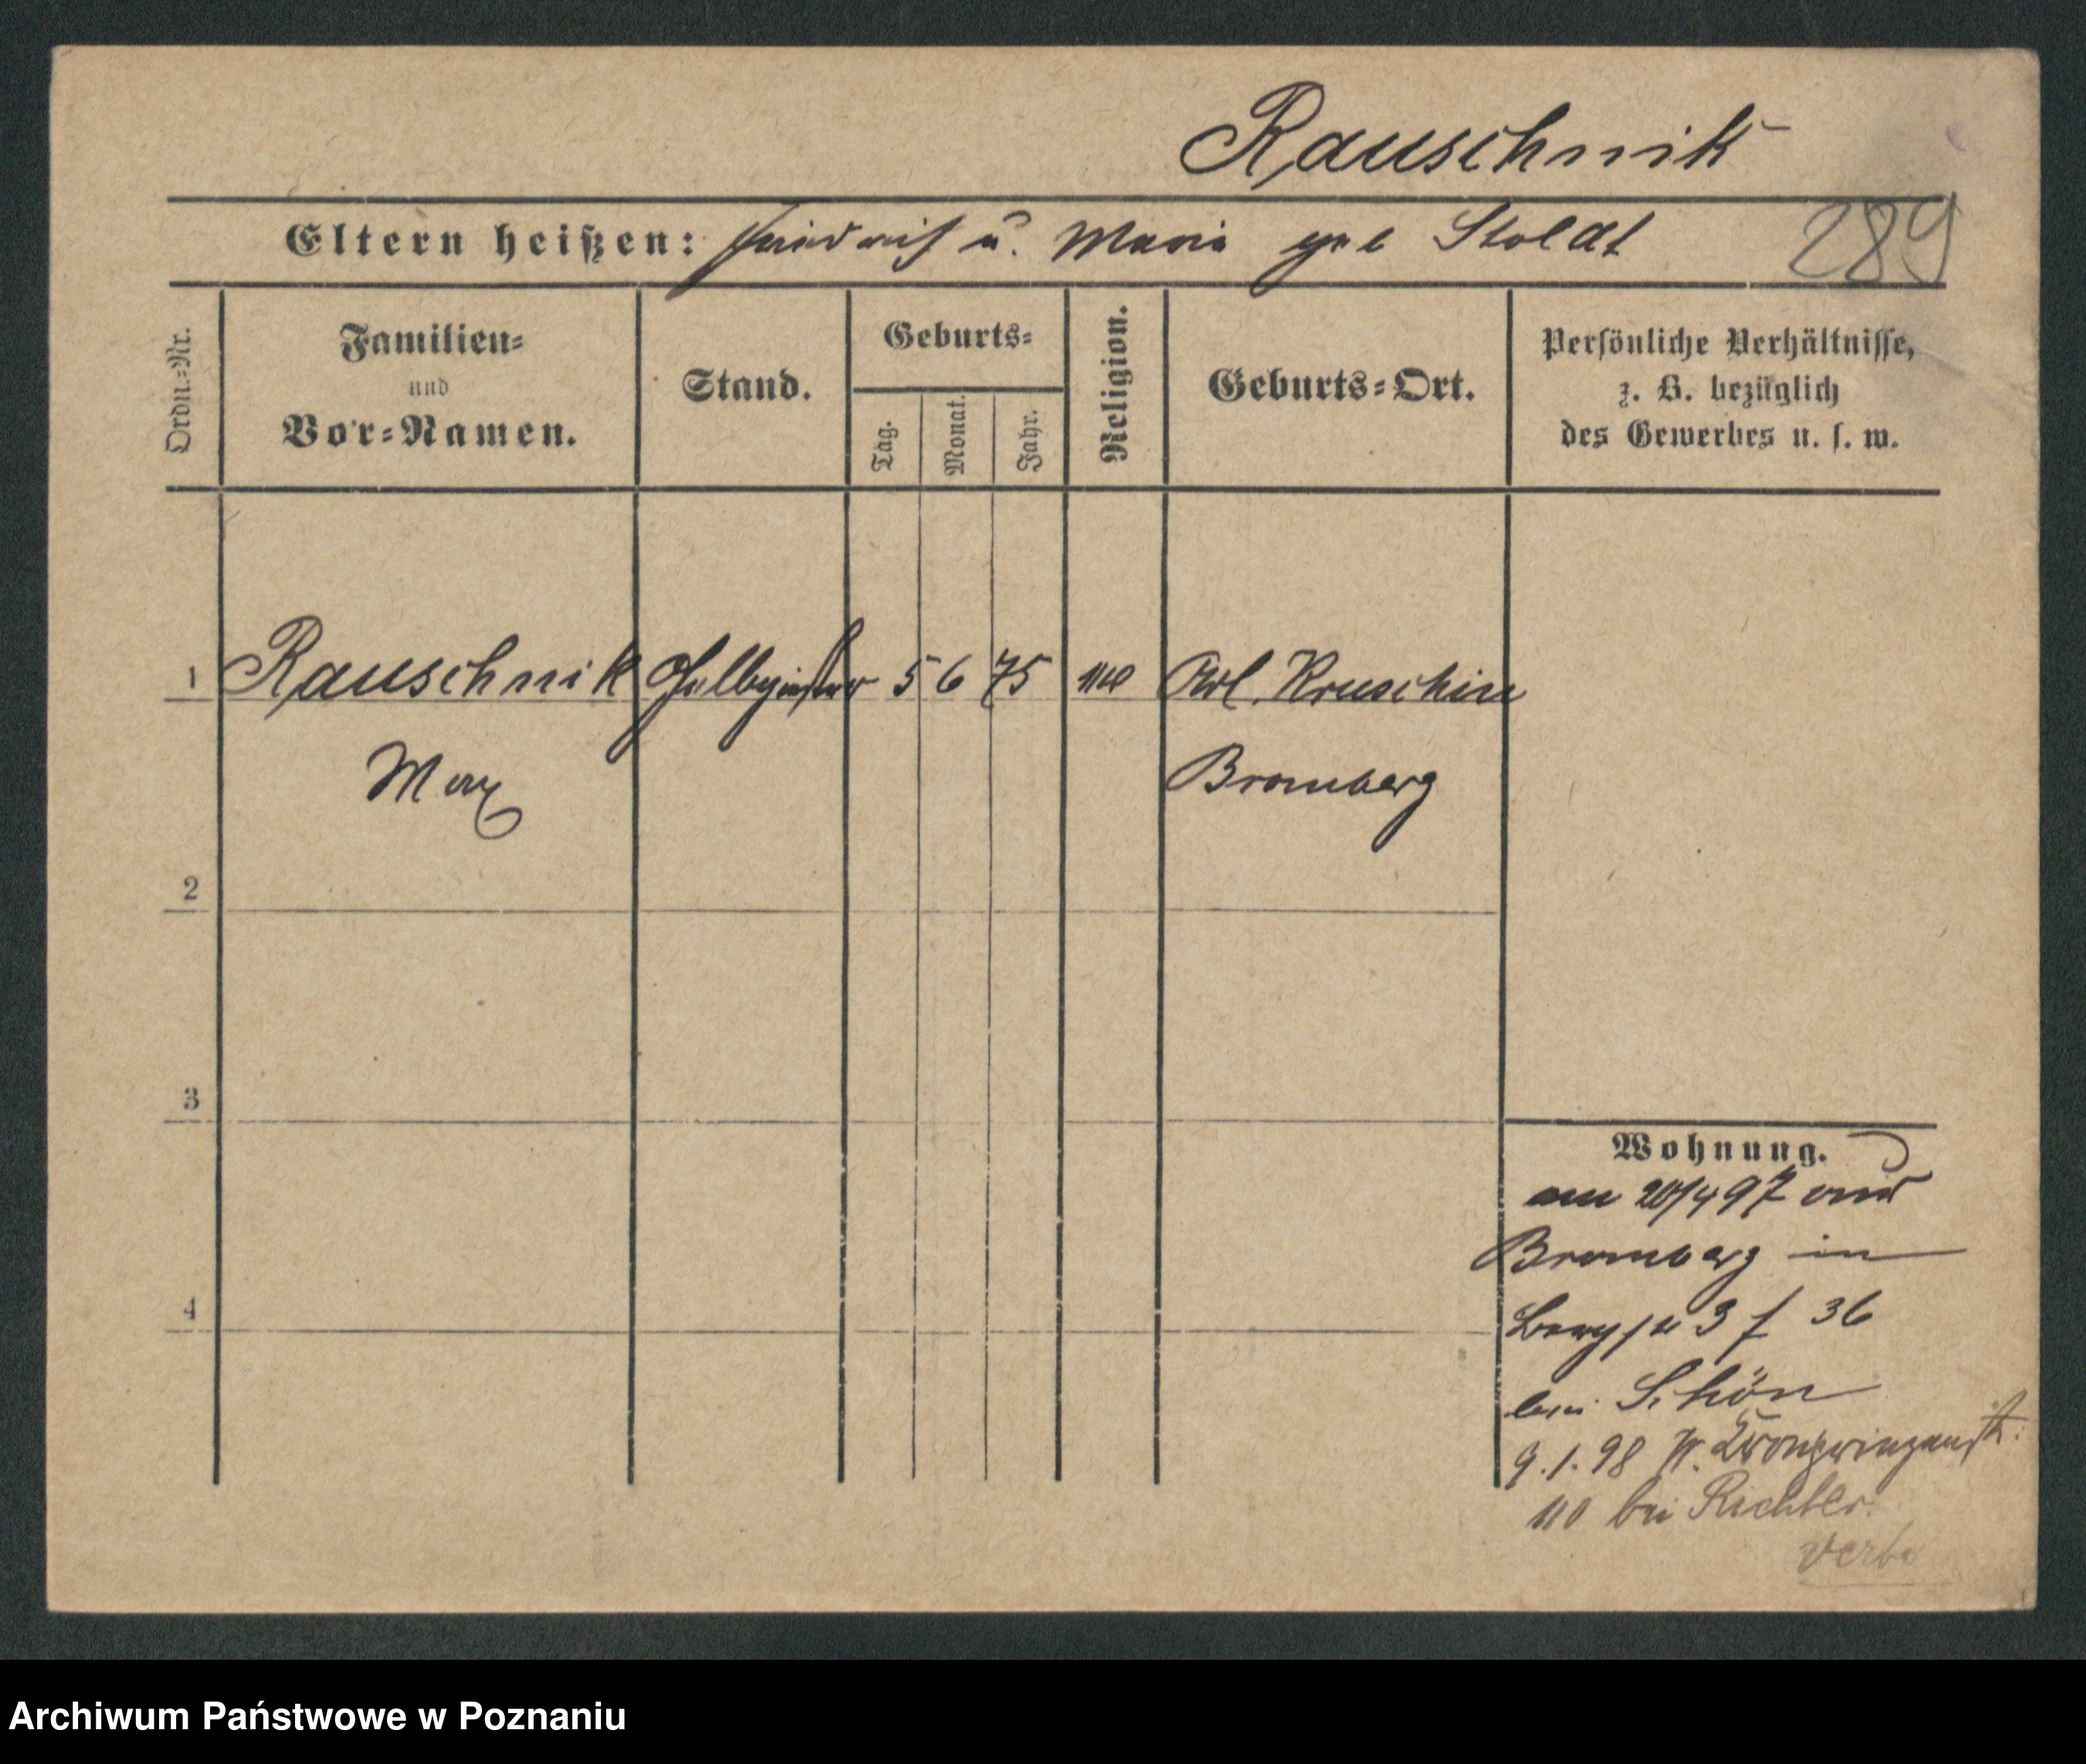 Rauschnik
Eltern heißen: Friedrich u. Maria geb Stoldt
289
Ordn.-Nr.
Familien-
und
Vor-Namen.
Stand.
Geburts-
Tag.
Monat.
Jahr.
Religion.
Geburts-Ort.
Persönliche Verhältnisse,
z. B. bezüglich
des Gewerbes u. s. w.
1 Rauschnik Gelbgießer 5 6 75 Kruschin
Max Bromberg
2
3
4
Wohnung.
am 20/4 97 aus
Bromberg in
3 f 36
bei Schön
9.1.98 Kronprinzenstr.
110 bei Richter.
Archiwum Państwowe w Poznaniu